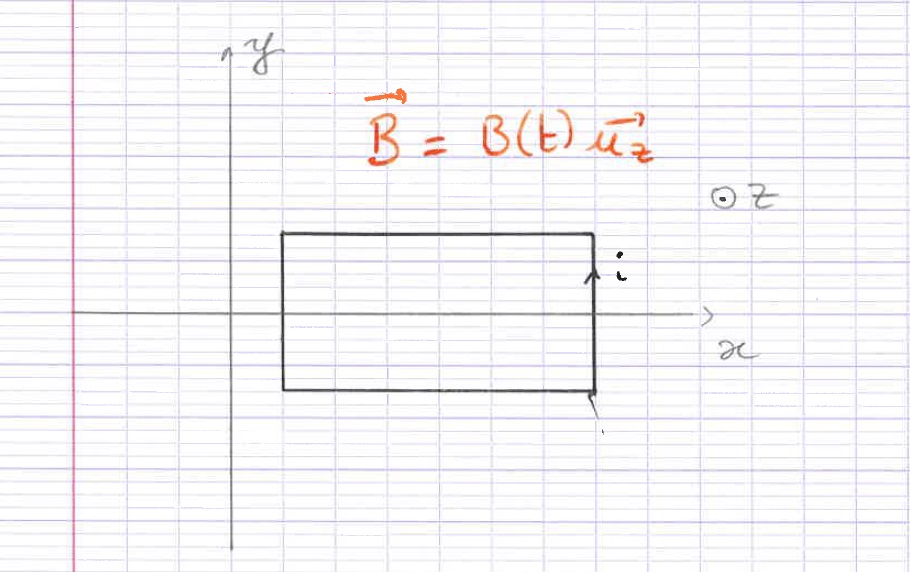 y
B⃗ = B(t) u⃗z
⊙ z
i
x